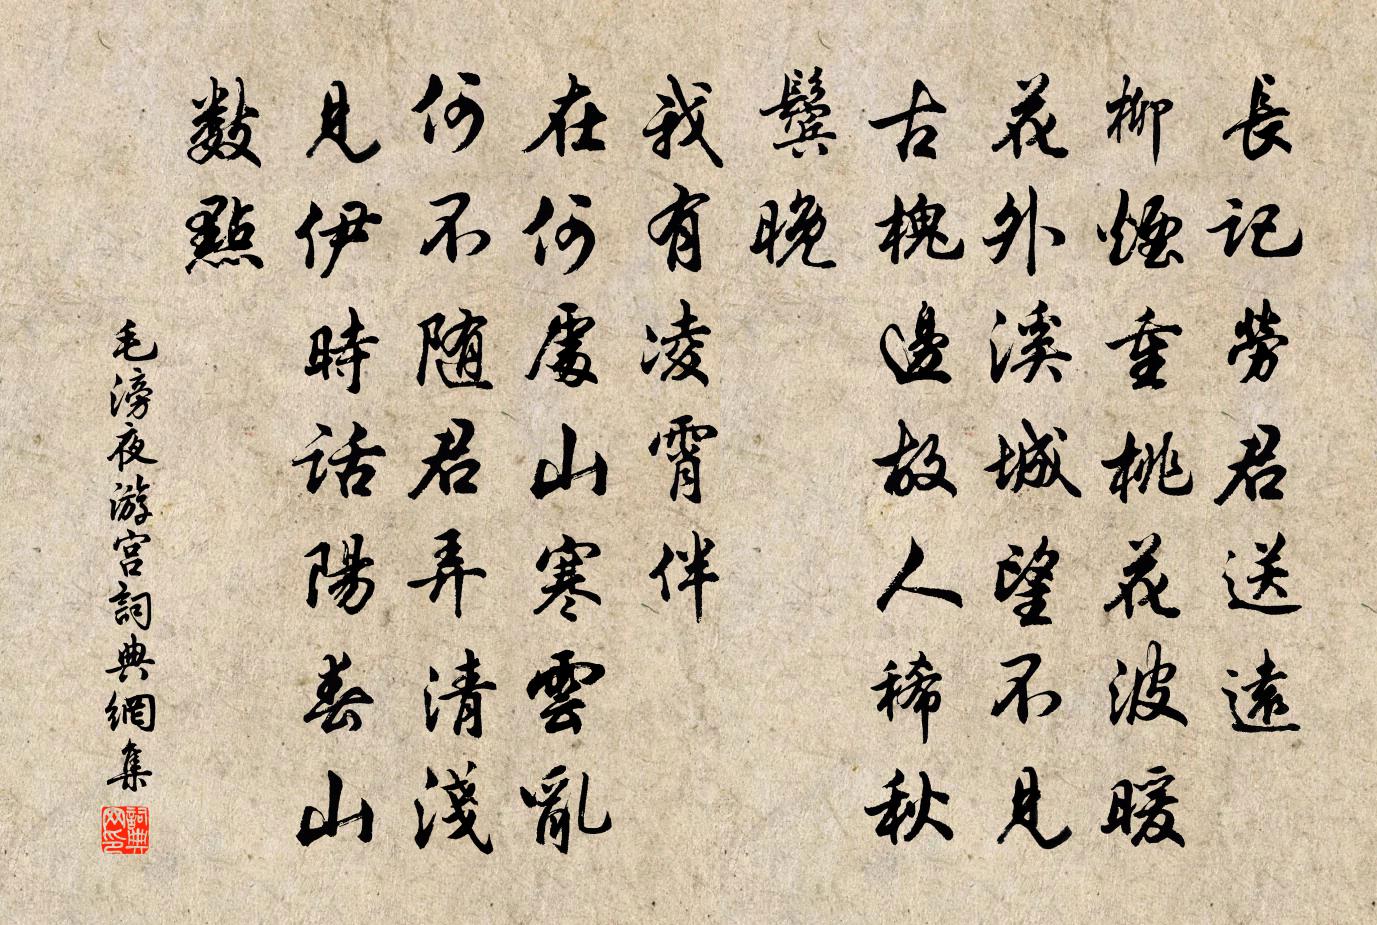 長記勞君送遠
柳煙重桃花波暖
花外溪城望不見
古槐邊故人稀秋
鬢晚
我有凌霄伴
在何處山寒雲亂
何不随君弄清淺
見伊時話陽春山
數點
毛滂夜游宮詞典網集
詞典网印